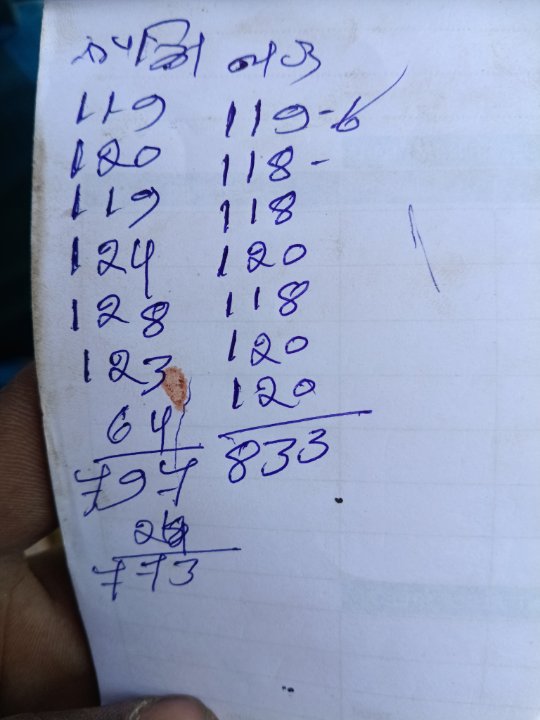 119 119-6
120 118-
119 118
124 120
128 118
123 120
64 120
797 833
24
773